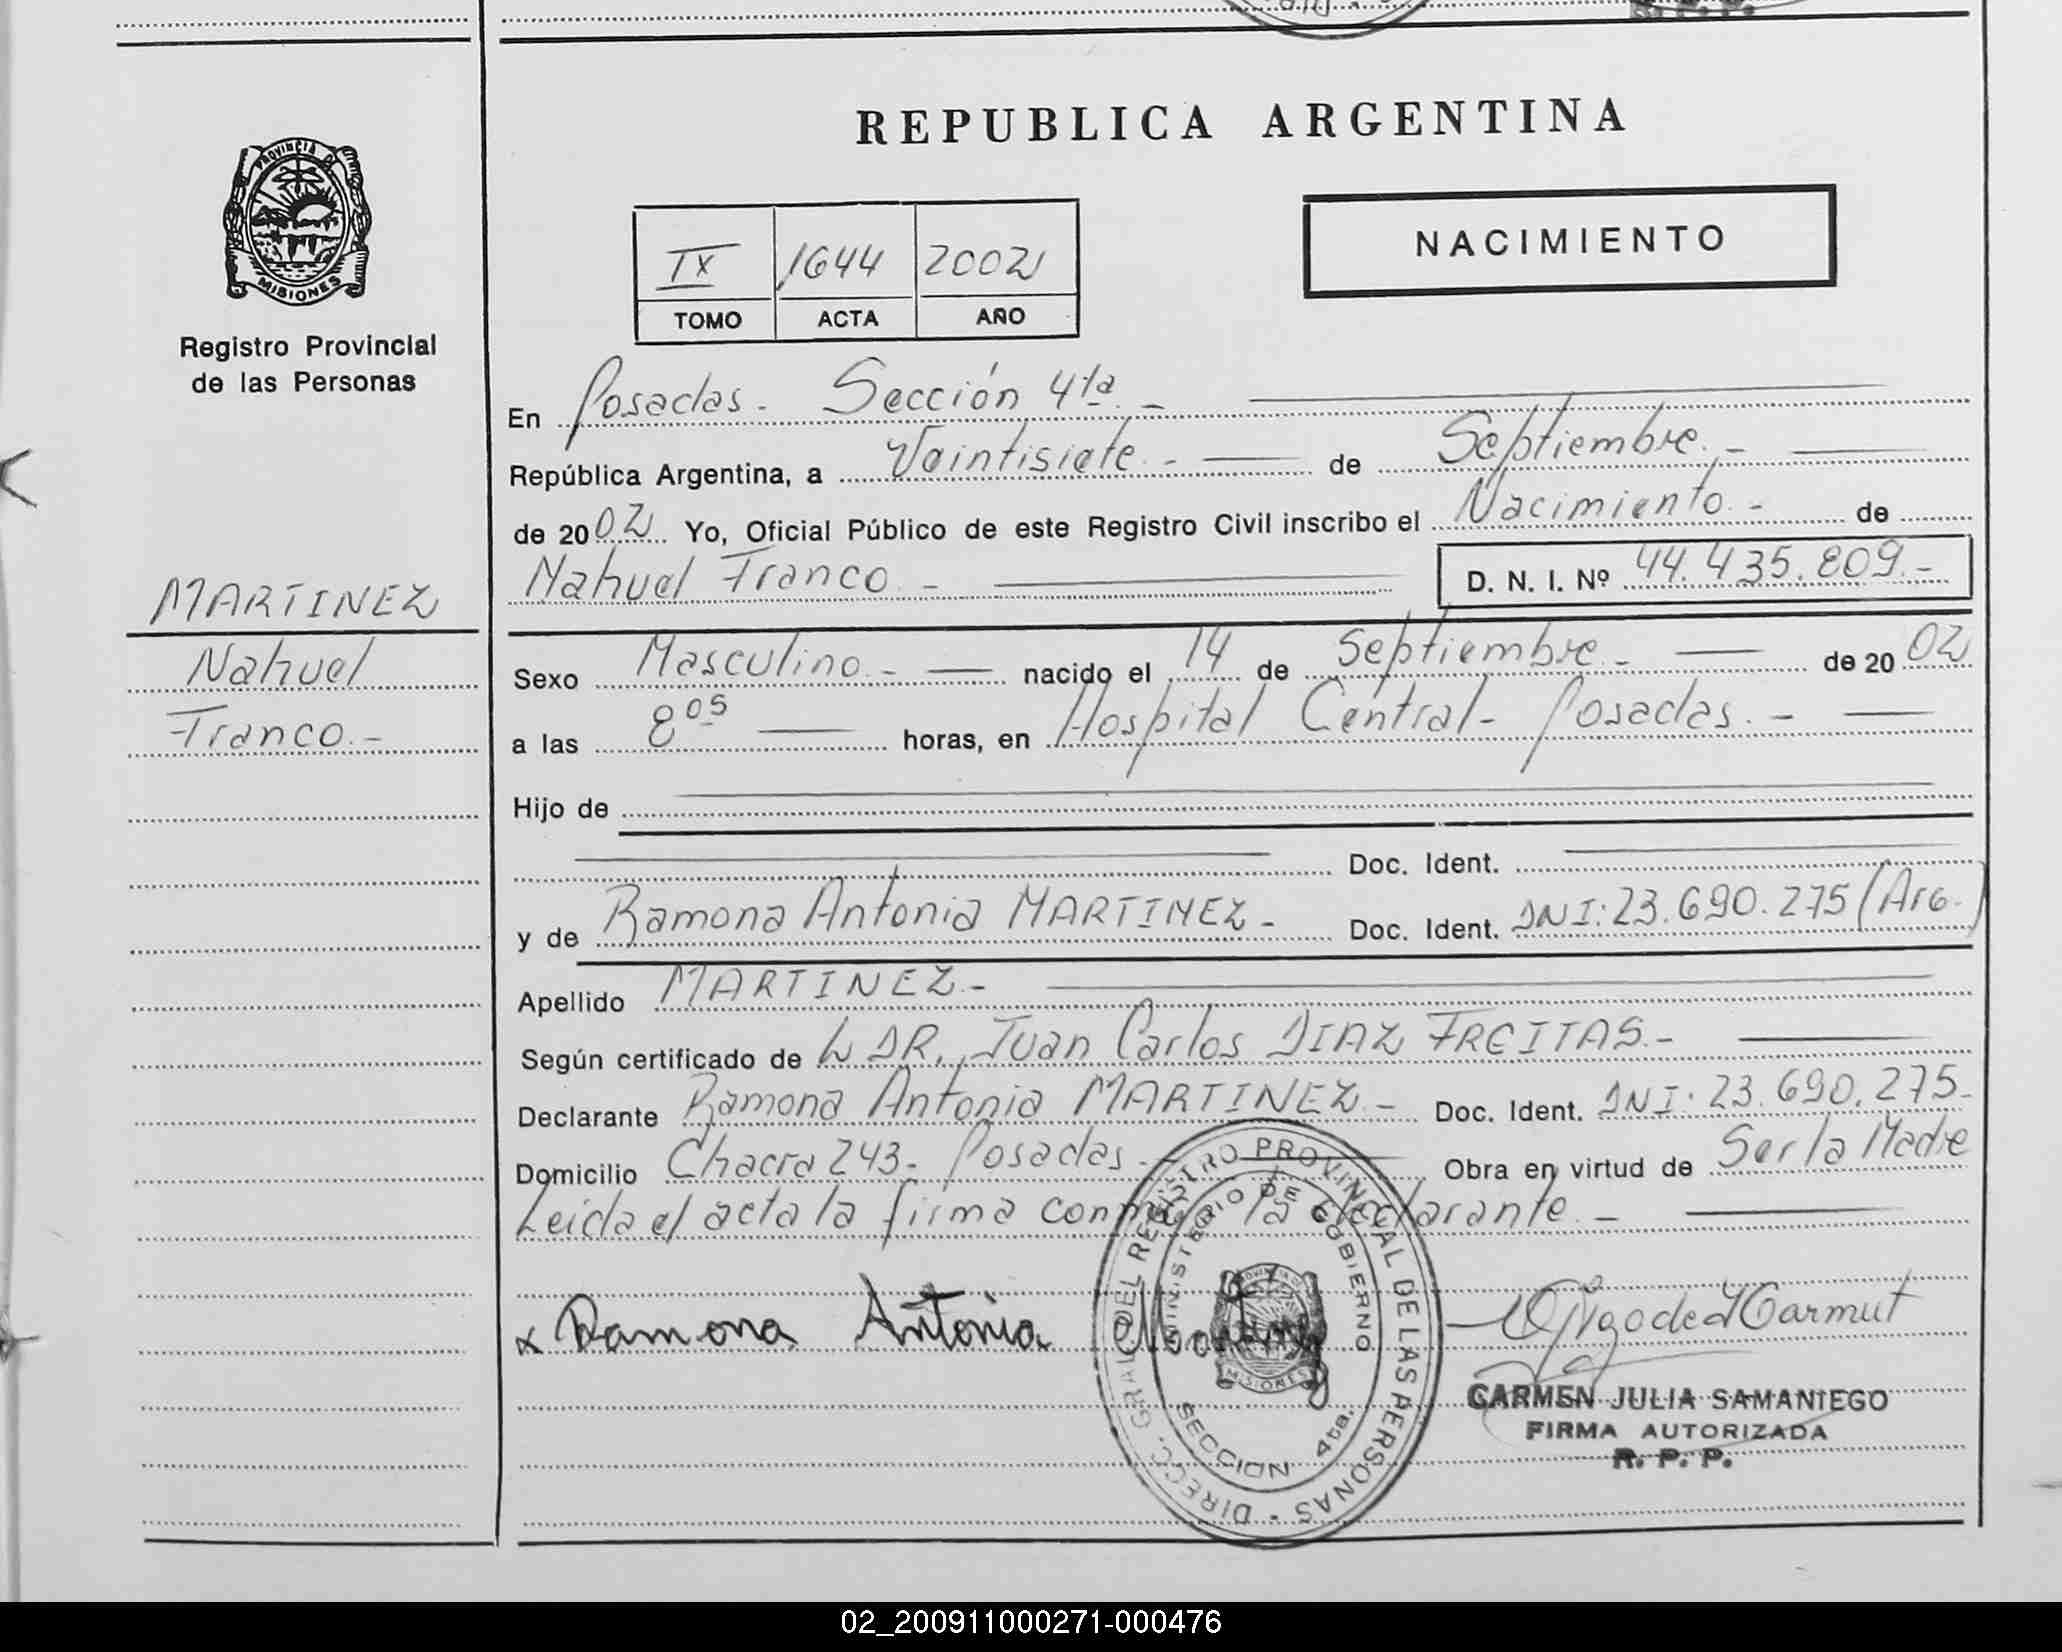 REPUBLICA ARGENTINA
PROVINCIA DE
MISIONES
Registro Provincial
de las Personas
NACIMIENTO
IX 1644 2002
TOMO ACTA AÑO
En Posadas - Sección 4ta. -
República Argentina, a Veintisiete. - de Septiembre. -
de 2002 Yo, Oficial Público de este Registro Civil inscribo el Nacimiento. - de
Nahuel Franco. - D. N. I. Nº 44.435.809. -
MARTINEZ
Nahuel
Franco. -
Sexo Masculino. - nacido el 14 de Septiembre. - de 2002
a las 8 05 horas, en Hospital Central - Posadas. -
Hijo de
Doc. Ident.
y de Ramona Antonia MARTINEZ - Doc. Ident. DNI: 23.690.275 (Arg.)
Apellido MARTINEZ. -
Según certificado de DR. Juan Carlos DIAZ FREITAS. -
Declarante Ramona Antonia MARTINEZ. - Doc. Ident. DNI: 23.690.275-
Domicilio Chacra 243. Posadas. - Obra en virtud de Ser la Madre
Leida el acta la firma conmigo la declarante. -
x Ramona Antonia Martinez
DIRECC. GRAL DEL REGISTRO PROVINCIAL DE LAS PERSONAS -
MINISTERIO DE GOBIERNO
MISIONES
SECCION 4ta.
CARMEN JULIA SAMANIEGO
FIRMA AUTORIZADA
R. P. P.
02_200911000271-000476